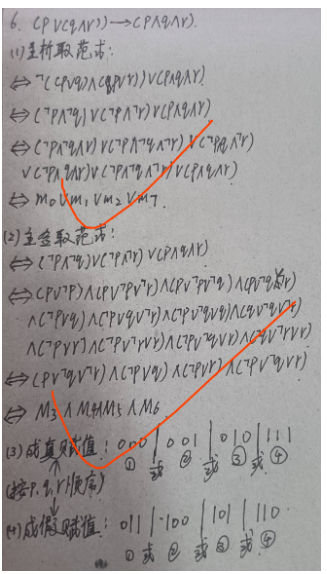 6. (P∨(q∧r))→(P∧q∧r).
(1)主析取范式:
⇔ ¬((P∨q)∧(P∨r))∨(P∧q∧r)
⇔ (¬P∧¬q)∨(¬P∧¬r)∨(P∧q∧r)
⇔ (¬P∧¬q∧r)∨(¬P∧¬q∧¬r)∨(¬P∧q∧¬r)
∨(¬P∧¬q∧¬r)∨(P∧q∧r)
⇔ m₀∨m₁∨m₂∨m₇.
(2)主合取范式:
⇔ (¬P∧¬q)∨(¬P∧¬r)∨(P∧q∧r)
⇔(P∨¬P)∧(P∨¬P∨¬r)∧(P∨¬P∨¬q)∧(P∨¬q∨¬r)
∧(¬P∨q)∧(¬P∨q∨¬r)∧(¬P∨¬q∨q)∧(q∨¬q∨¬r)
∧(¬P∨r)∧(¬P∨¬r∨r)∧(¬P∨¬q∨r)∧(¬q∨¬r∨r)
⇔(P∨¬q∨¬r)∧(¬P∨q)∧(¬P∨r)∧(¬P∨¬q∨r)
⇔ M₃∧M₄∧M₅∧M₆.
(3)成真赋值: 000 | 001 | 010 | 111
① 或 ② 或 ③ 或 ④
(按p,q,r顺序)
(4)成假赋值: 011 | 100 | 101 | 110
① 或 ② 或 ③ 或 ④